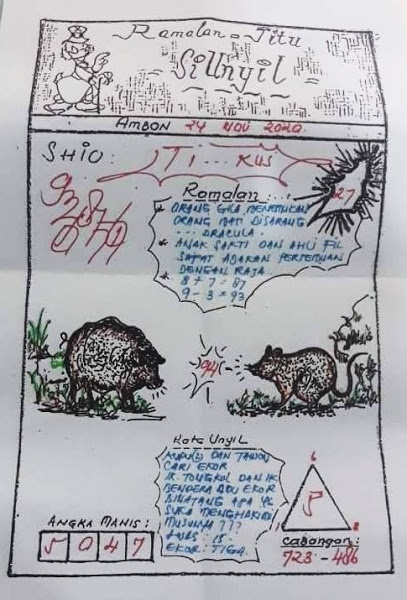 Ramalan Jitu
SiUnyil
AMBON 24 NOV 2020
SHIO: TI...KUS
27
Ramalan:...
* ORANG GILA MENEMUKAN
ORANG MATI DISARANG
... DRACULA.
* ANAK SAKTI DAN AHLI FIL
SAFAT ADAKAN PERTEMUAN
DENGAN RAJA
* 8 + 7 = 87
9 - 3 = 93
94
Kata Unyil
DAN TAWON
CARI EKOR
IK. TONGKOL DAN IK
BENDERA ADU EKOR
BINATANG APA YG
SUKA
MUSUHNYA ???
LUBS : 15.
EKOR : TIGA.
6
5
1
2
ANGKA MANIS:
5 0 4 7
Cabangan:
723 - 486